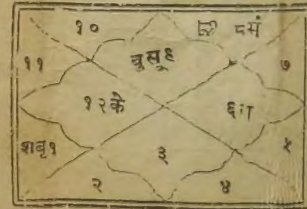 १०
८मं
११
बुसू९
७
१२के
६रा
शबृ१
३
५
२
४